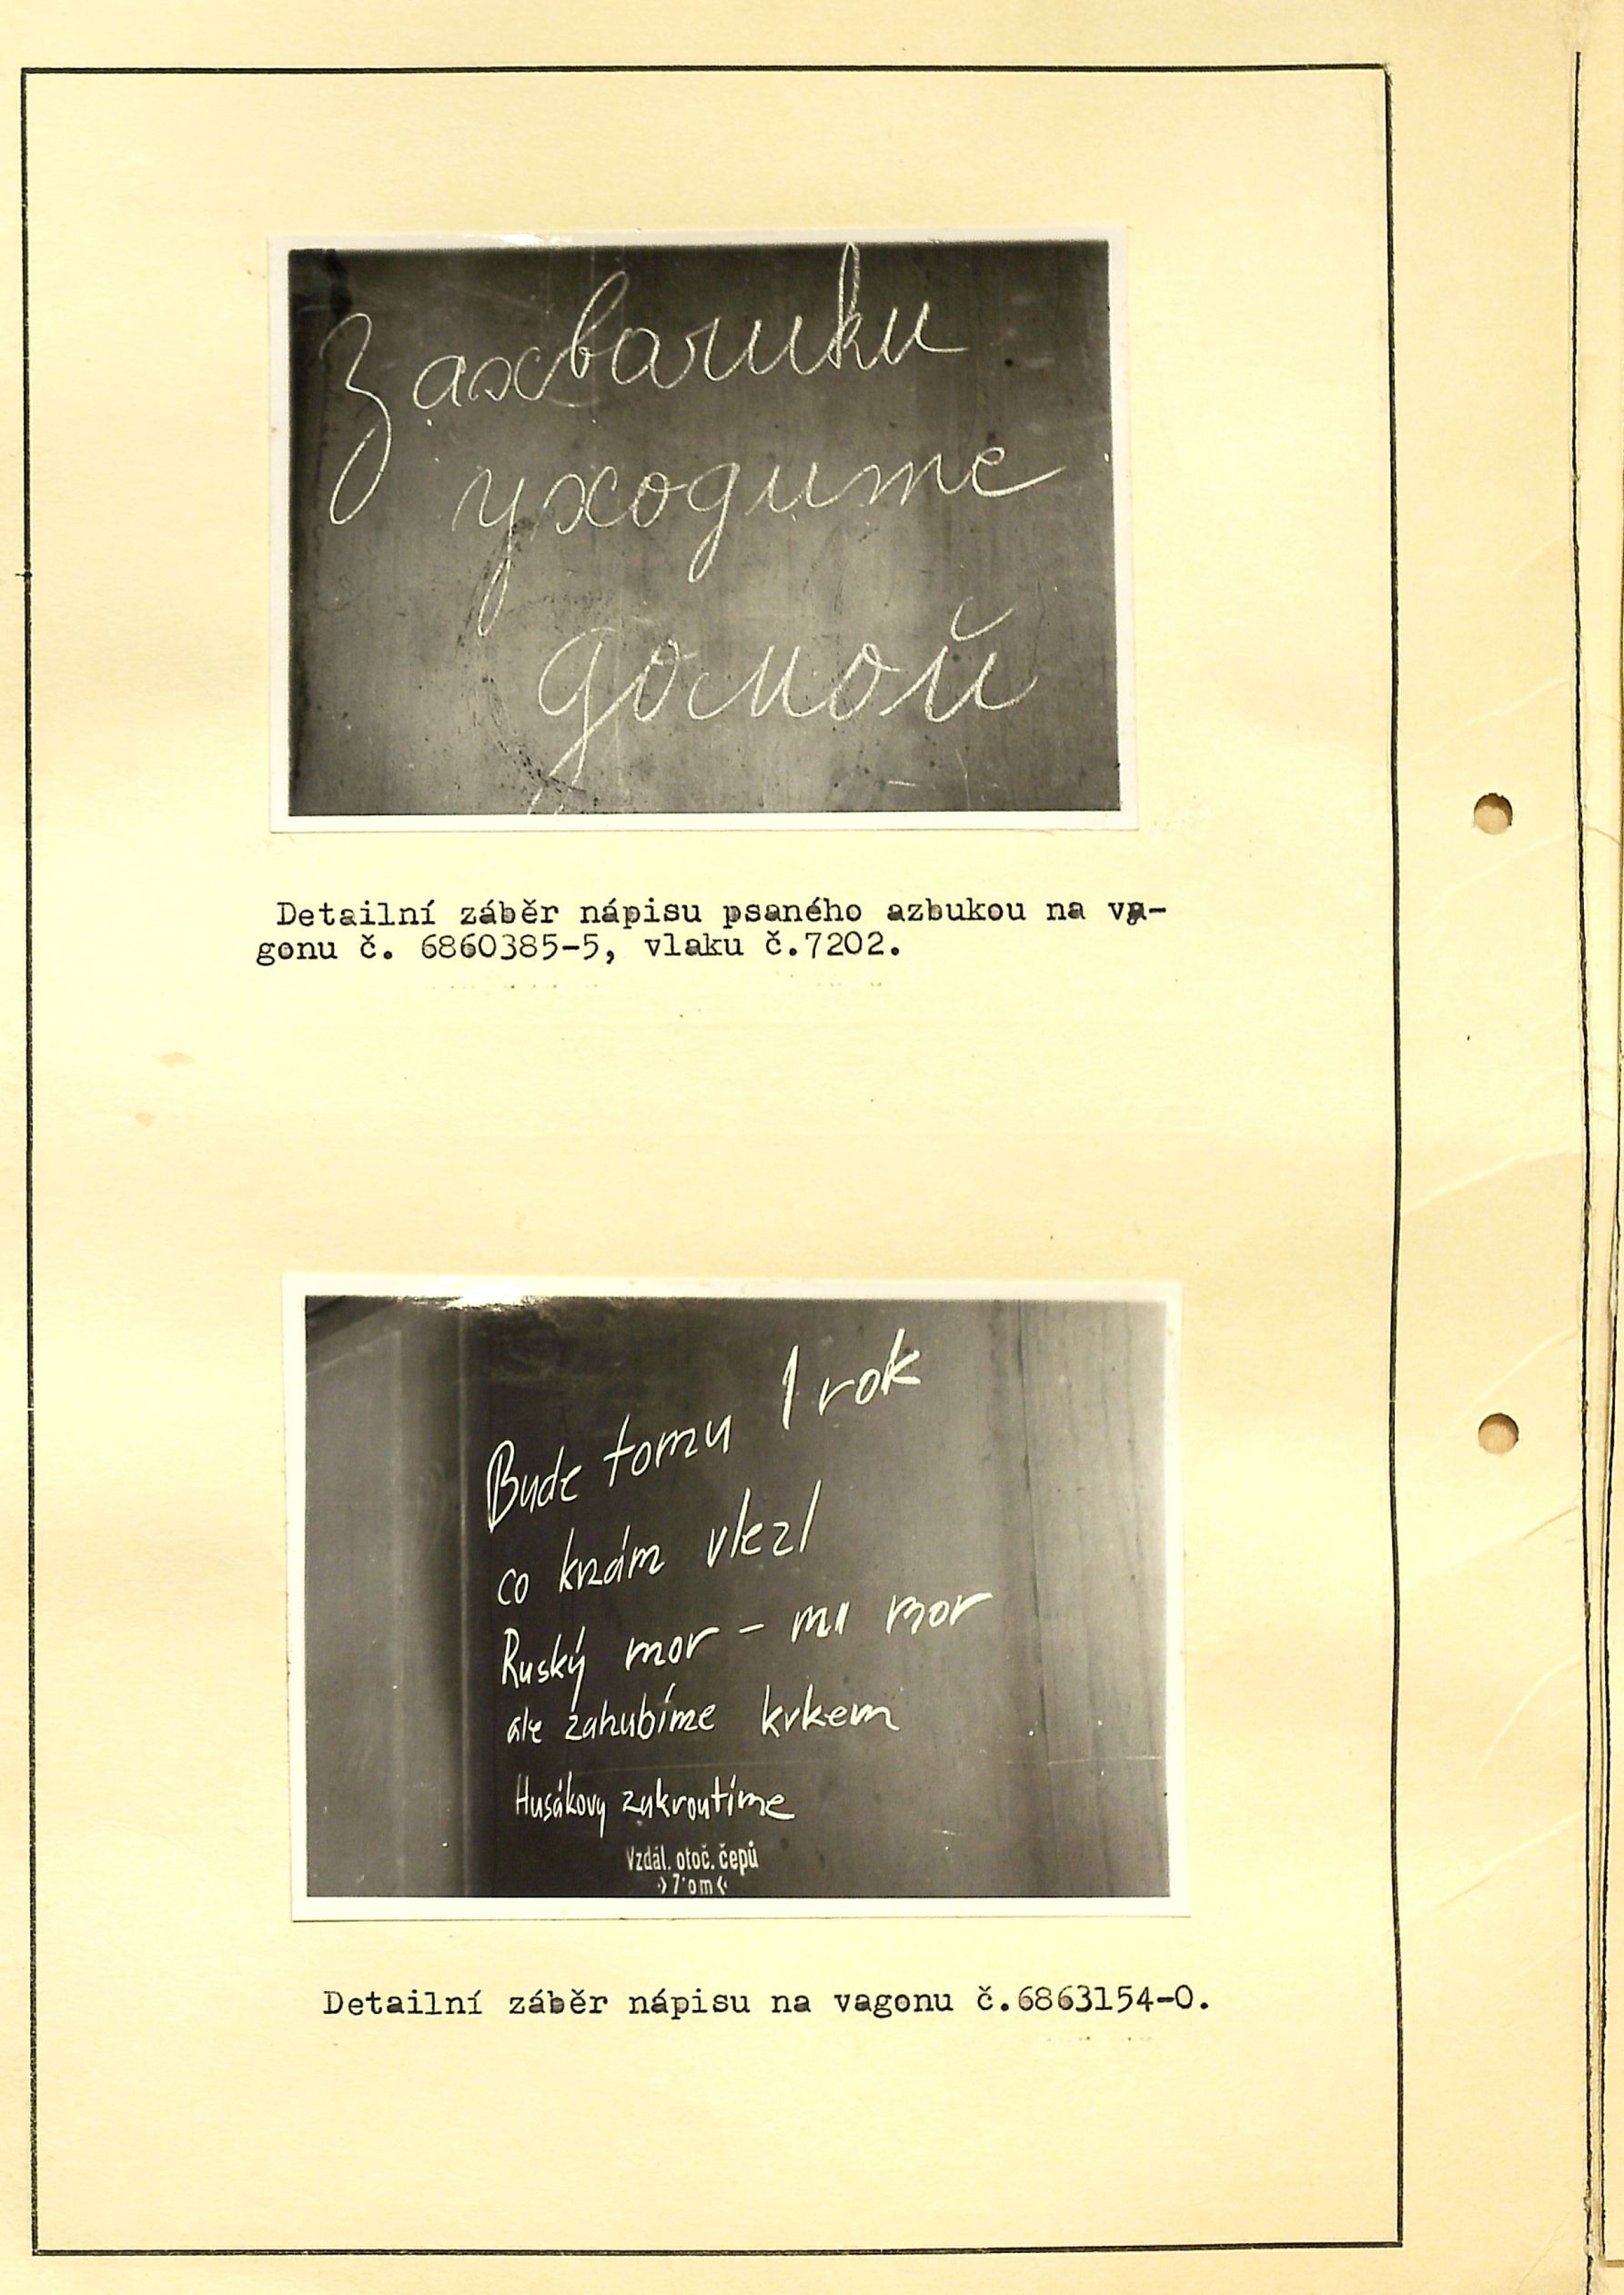 Захватики
уходите
домой
Detailní záběr nápisu psaného azbukou na va-
gonu č. 6860385-5, vlaku č.7202.
Bude tomu 1 rok
co knám vlezl
Ruský mor – mu mor
ale zahubíme krkem
Husákovy zakroutíme
Vzdál. otoč. čepů
Detailní záběr nápisu na vagonu č.6863154-0.